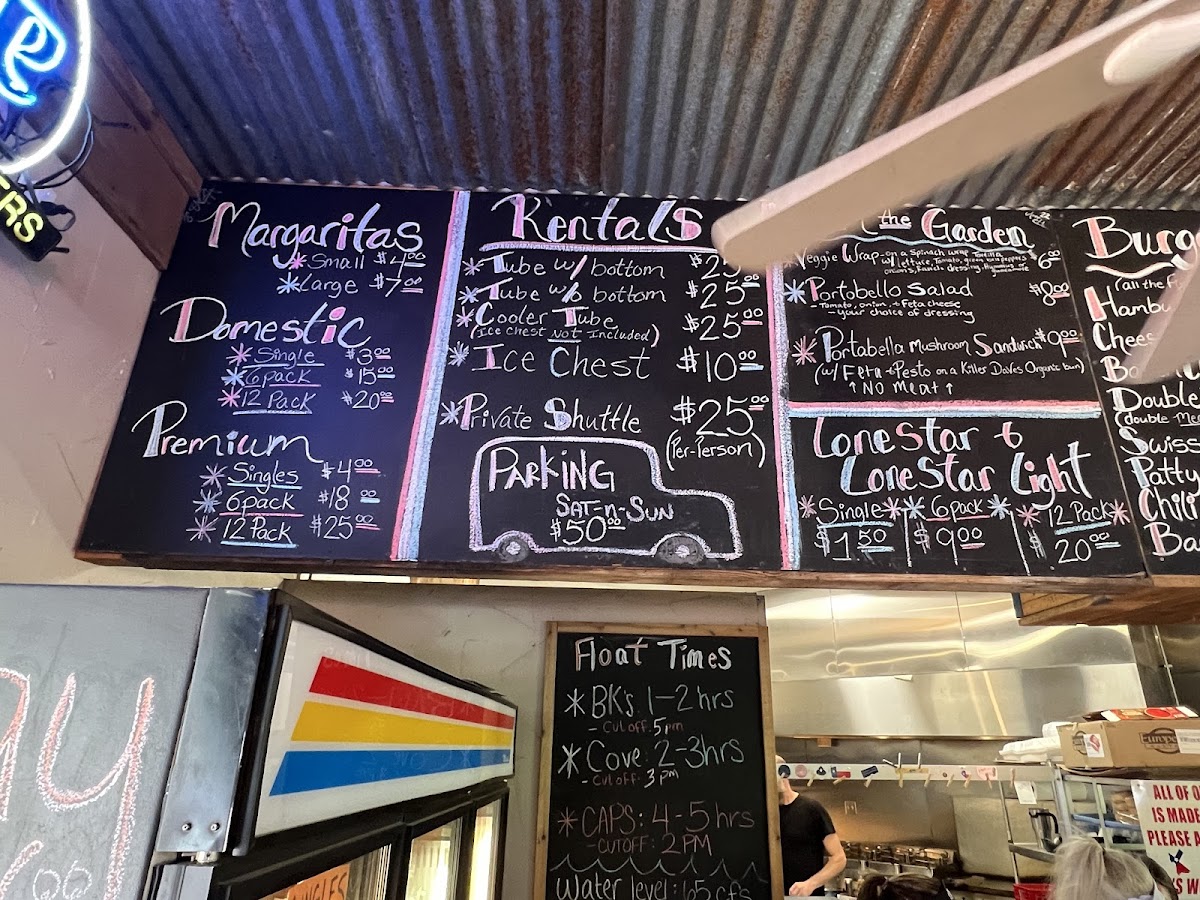 Margaritas
* Small $4.00
* Large $7.00
Domestic
* Single $3.00
* 6 pack $15.00
* 12 Pack $20.00
Premium
* Singles $4.00
* 6 pack $18.00
* 12 Pack $25.00
Rentals
* Tube w/ bottom $25.00
* Tube w/o bottom $25.00
* Cooler Tube $25.00
(Ice chest Not Included)
* Ice Chest $10.00
* Private Shuttle $25.00
(Per-Person)
PARKING
SAT-n-SUN
$50.00
the Garden
Veggie Wrap - on a Spinach wrap Tortilla $6.00
w/ lettuce, Tomato, green bell peppers
onions, Ranch dressing, Hummus
* Portobello Salad $8.00
- Tomato, onion, + Feta cheese
- your choice of dressing
* Portabella Mushroom Sandwich $9.00
(w/ Feta + Pesto on a Killer Daves Organic bun)
↑ NO Meat ↑
Lonestar &
LoneStar Light
* Single * * 6 pack * * 12 Pack *
$1.50 $9.00 $20.00
Burg
(all the
Hambu
Chees
Double
(double me
Swiss
Patty
Chili
Ba
Float Times
* BK's: 1-2 hrs
- Cut off: 5pm
* Cove: 2-3hrs
- Cut off: 3pm
* CAPS: 4-5 hrs
- CUTOFF: 2PM
Water level: 65 cfs
ERS
SINGLES
Europe
ALL OF O
IS MADE
PLEASE A